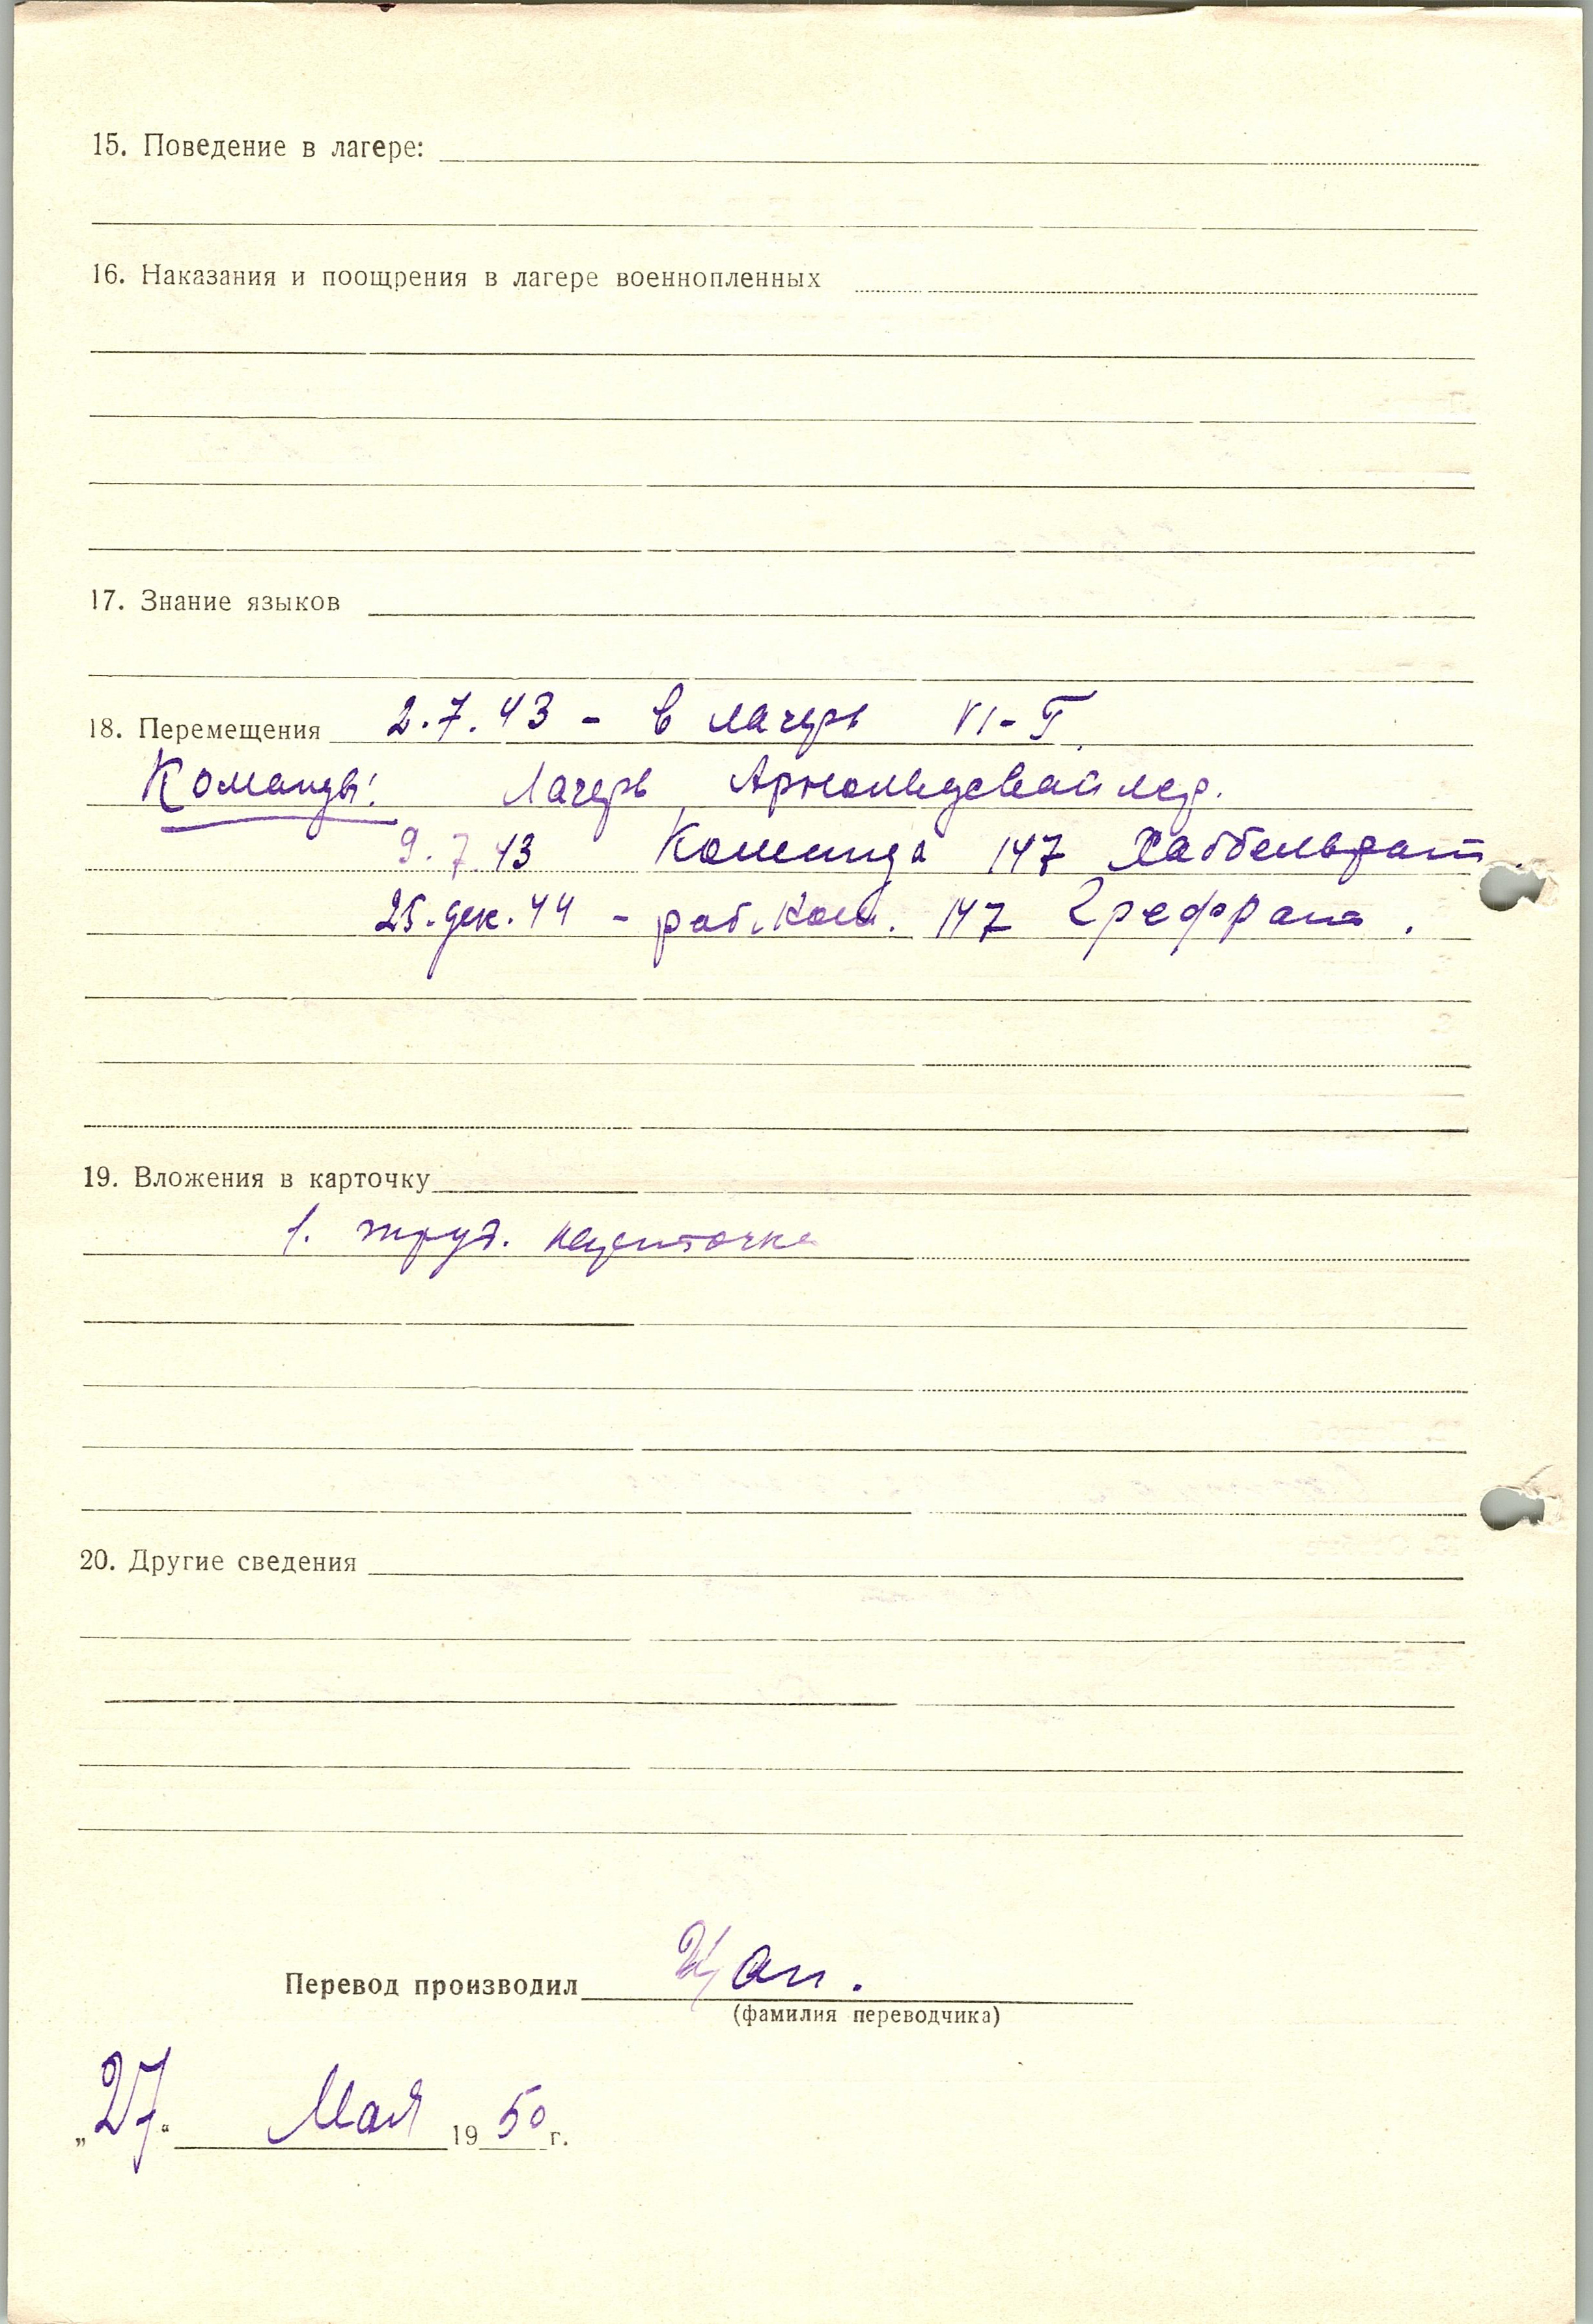 15. Поведение в лагере:
16. Наказания и поощрения в лагере военнопленных
17. Знание языков
18. Перемещения 2.7.43 - в лагерь VI-Г
Команды: Лагерь Арнольдсвайлер.
9.7.43 Команда 147 Хаббельрат.
25.дек.44 - раб.ком. 147 Грефрат.
19. Вложения в карточку
1. труд. карточка
20. Другие сведения
Перевод производил Цап.
(фамилия переводчика)
„27“ Мая 1950 г.